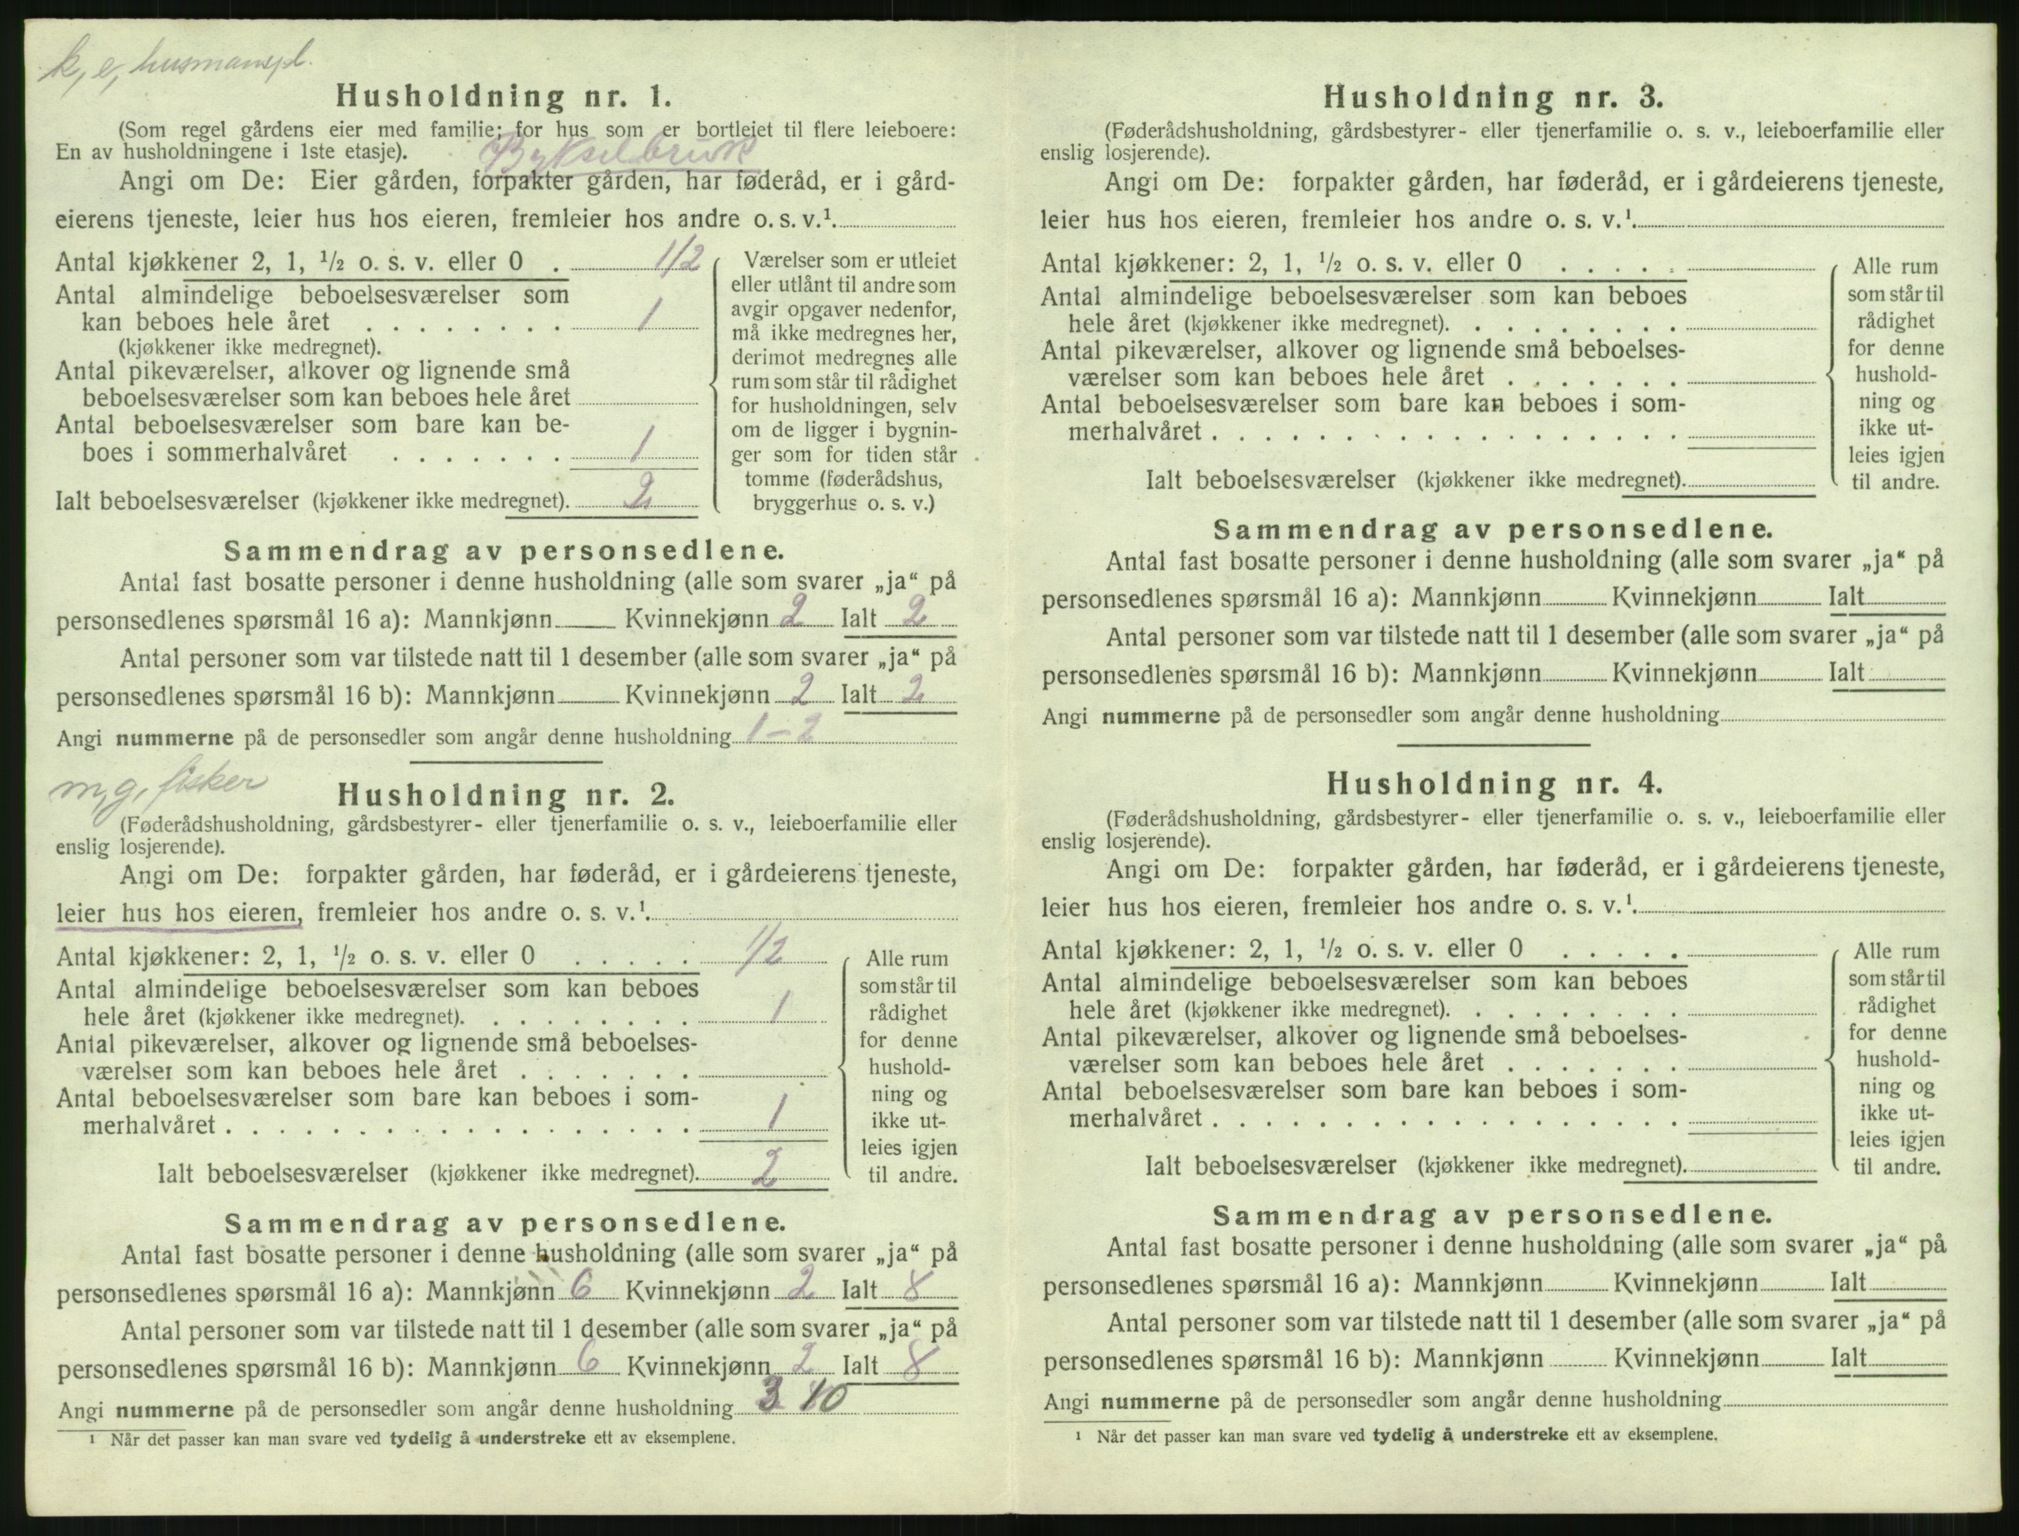 k, e, husmanspl.
Husholdning nr. 1.
(Som regel gårdens eier med familie; for hus som er bortleiet til flere leieboere:
En av husholdningene i 1ste etasje).
Bykselbruk
Angi om De: Eier gården, forpakter gården, har føderåd, er i gård-
eierens tjeneste, leier hus hos eieren, fremleier hos andre o. s. v.¹
Antal kjøkkener 2, 1, ½ o. s. v. eller 0 . 1/2
Antal almindelige beboelsesværelser som
kan beboes hele året . . . . . . . . 1
(kjøkkener ikke medregnet).
Antal pikeværelser, alkover og lignende små
beboelsesværelser som kan beboes hele året
Antal beboelsesværelser som bare kan be-
boes i sommerhalvåret . . . . . . . 1
Ialt beboelsesværelser (kjøkkener ikke medregnet). 2
Værelser som er utleiet
eller utlånt til andre som
avgir opgaver nedenfor,
må ikke medregnes her,
derimot medregnes alle
rum som står til rådighet
for husholdningen, selv
om de ligger i bygnin-
ger som for tiden står
tomme (føderådshus,
bryggerhus o. s. v.)
Sammendrag av personsedlene.
Antal fast bosatte personer i denne husholdning (alle som svarer „ja“ på
personsedlenes spørsmål 16 a): Mannkjønn — Kvinnekjønn 2 Ialt 2
Antal personer som var tilstede natt til 1 desember (alle som svarer „ja“ på
personsedlenes spørsmål 16 b): Mannkjønn — Kvinnekjønn 2 Ialt 2
Angi nummerne på de personsedler som angår denne husholdning 1–2
m, g, fisker
Husholdning nr. 2.
(Føderådshusholdning, gårdsbestyrer- eller tjenerfamilie o. s. v., leieboerfamilie eller
enslig losjerende).
Angi om De: forpakter gården, har føderåd, er i gårdeierens tjeneste,
leier hus hos eieren, fremleier hos andre o. s. v.¹
Antal kjøkkener: 2, 1, ½ o. s. v. eller 0 . . . . . 1/2
Antal almindelige beboelsesværelser som kan beboes
hele året (kjøkkener ikke medregnet). . . . . . . . . 1
Antal pikeværelser, alkover og lignende små beboelses-
værelser som kan beboes hele året . . . . . . .
Antal beboelsesværelser som bare kan beboes i som-
merhalvåret . . . . . . . . . . . . . . . . . . 1
Ialt beboelsesværelser (kjøkkener ikke medregnet). 2
Alle rum
som står til
rådighet
for denne
hushold-
ning og
ikke ut-
leies igjen
til andre.
Sammendrag av personsedlene.
Antal fast bosatte personer i denne husholdning (alle som svarer „ja“ på
personsedlenes spørsmål 16 a): Mannkjønn 6 Kvinnekjønn 2 Ialt 8
Antal personer som var tilstede natt til 1 desember (alle som svarer „ja“ på
personsedlenes spørsmål 16 b): Mannkjønn 6 Kvinnekjønn 2 Ialt 8
Angi nummerne på de personsedler som angår denne husholdning 3 10
¹ Når det passer kan man svare ved tydelig å understreke ett av eksemplene.
Husholdning nr. 3.
(Føderådshusholdning, gårdsbestyrer- eller tjenerfamilie o. s. v., leieboerfamilie eller
enslig losjerende).
Angi om De: forpakter gården, har føderåd, er i gårdeierens tjeneste,
leier hus hos eieren, fremleier hos andre o. s. v.¹
Antal kjøkkener: 2, 1, ½ o. s. v. eller 0 . . . . .
Antal almindelige beboelsesværelser som kan beboes
hele året (kjøkkener ikke medregnet). . . . . . . . .
Antal pikeværelser, alkover og lignende små beboelses-
værelser som kan beboes hele året . . . . . . .
Antal beboelsesværelser som bare kan beboes i som-
merhalvåret . . . . . . . . . . . . . . . . . .
Ialt beboelsesværelser (kjøkkener ikke medregnet).
Alle rum
som står til
rådighet
for denne
hushold-
ning og
ikke ut-
leies igjen
til andre.
Sammendrag av personsedlene.
Antal fast bosatte personer i denne husholdning (alle som svarer „ja“ på
personsedlenes spørsmål 16 a): Mannkjønn Kvinnekjønn Ialt
Antal personer som var tilstede natt til 1 desember (alle som svarer „ja“ på
personsedlenes spørsmål 16 b): Mannkjønn Kvinnekjønn Ialt
Angi nummerne på de personsedler som angår denne husholdning
Husholdning nr. 4.
(Føderådshusholdning, gårdsbestyrer- eller tjenerfamilie o. s. v., leieboerfamilie eller
enslig losjerende).
Angi om De: forpakter gården, har føderåd, er i gårdeierens tjeneste,
leier hus hos eieren, fremleier hos andre o. s. v.¹
Antal kjøkkener: 2, 1, ½ o. s. v. eller 0 . . . . .
Antal almindelige beboelsesværelser som kan beboes
hele året (kjøkkener ikke medregnet). . . . . . . . .
Antal pikeværelser, alkover og lignende små beboelses-
værelser som kan beboes hele året . . . . . . .
Antal beboelsesværelser som bare kan beboes i som-
merhalvåret . . . . . . . . . . . . . . . . . .
Ialt beboelsesværelser (kjøkkener ikke medregnet).
Alle rum
som står til
rådighet
for denne
hushold-
ning og
ikke ut-
leies igjen
til andre.
Sammendrag av personsedlene.
Antal fast bosatte personer i denne husholdning (alle som svarer „ja“ på
personsedlenes spørsmål 16 a): Mannkjønn Kvinnekjønn Ialt
Antal personer som var tilstede natt til 1 desember (alle som svarer „ja“ på
personsedlenes spørsmål 16 b): Mannkjønn Kvinnekjønn Ialt
Angi nummerne på de personsedler som angår denne husholdning
¹ Når det passer kan man svare ved tydelig å understreke ett av eksemplene.